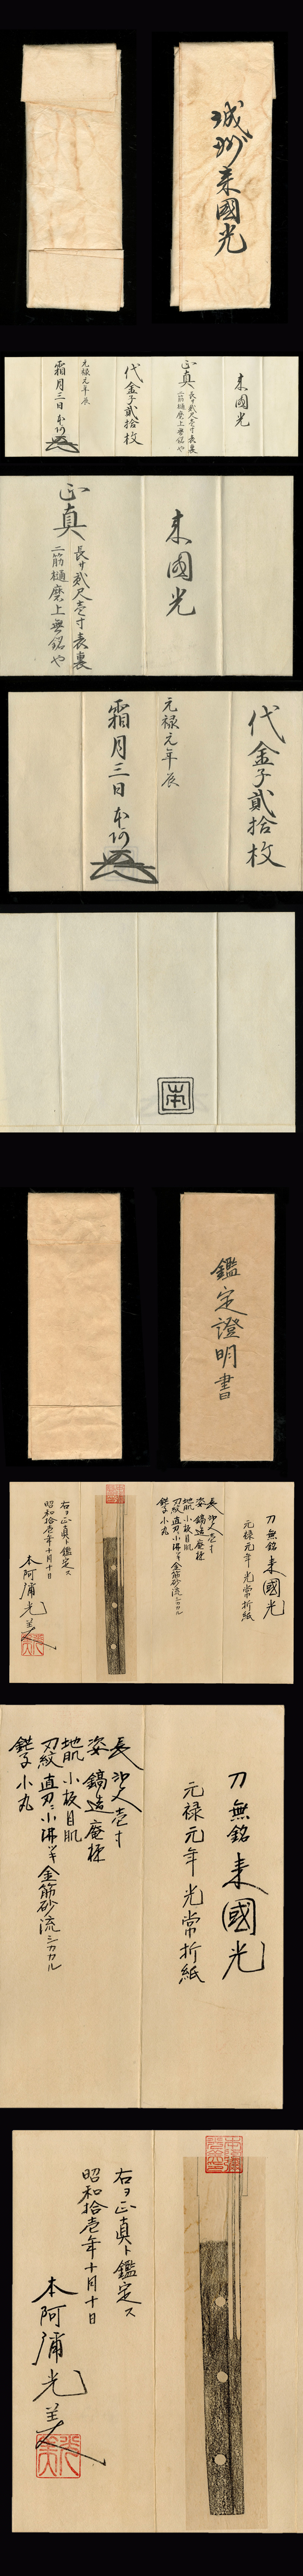 城州来國光
来國光
正真
長サ貳尺壱寸表裏
二筋樋磨上無銘也
代金子貳拾枚
元禄元年辰
霜月三日 本阿
来國光
正真
長サ貳尺壱寸表裏
二筋樋磨上無銘也
代金子貳拾枚
元禄元年辰
霜月三日 本阿
本
鑑定證明書
刀 無銘 来國光
元禄元年 光常折紙
長 貳尺壱寸
姿 鎬造庵棟
地肌 小板目肌
刃紋 直刃小沸ツキ金筋砂流シカカル
鋩子 小丸
右ヲ正真ト鑑定ス
昭和拾壱年十月十日
本阿彌光美
刀 無銘 来國光
元禄元年 光常折紙
長 貳尺壱寸
姿 鎬造庵棟
地肌 小板目肌
刃紋 直刃小沸ツキ金筋砂流シカカル
鋩子 小丸
右ヲ正真ト鑑定ス
昭和拾壱年十月十日
本阿彌光美